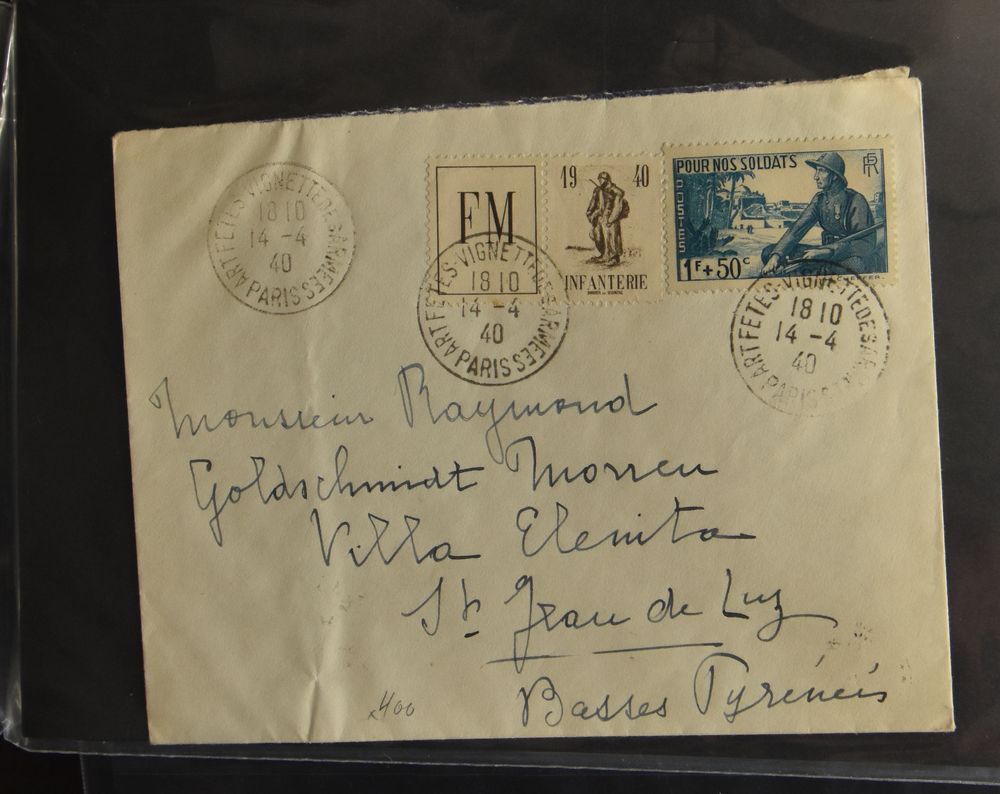 ART FETES-VIGNETTE DES ARMEES
18 10
14 - 4
40
PARIS
FM
19 40
INFANTERIE
POUR NOS SOLDATS
RF
POSTES
1F+50c
ART FETES-VIGNETTE DES ARMEES
18 10
14 - 4
40
PARIS
ART FETES-VIGNETTE DES AR
18 10
14 - 4
40
PARIS
Monsieur Raymond
Goldschmidt Morreu
Villa Elenita
St Jean de Luz
Basses Pyrénées
400